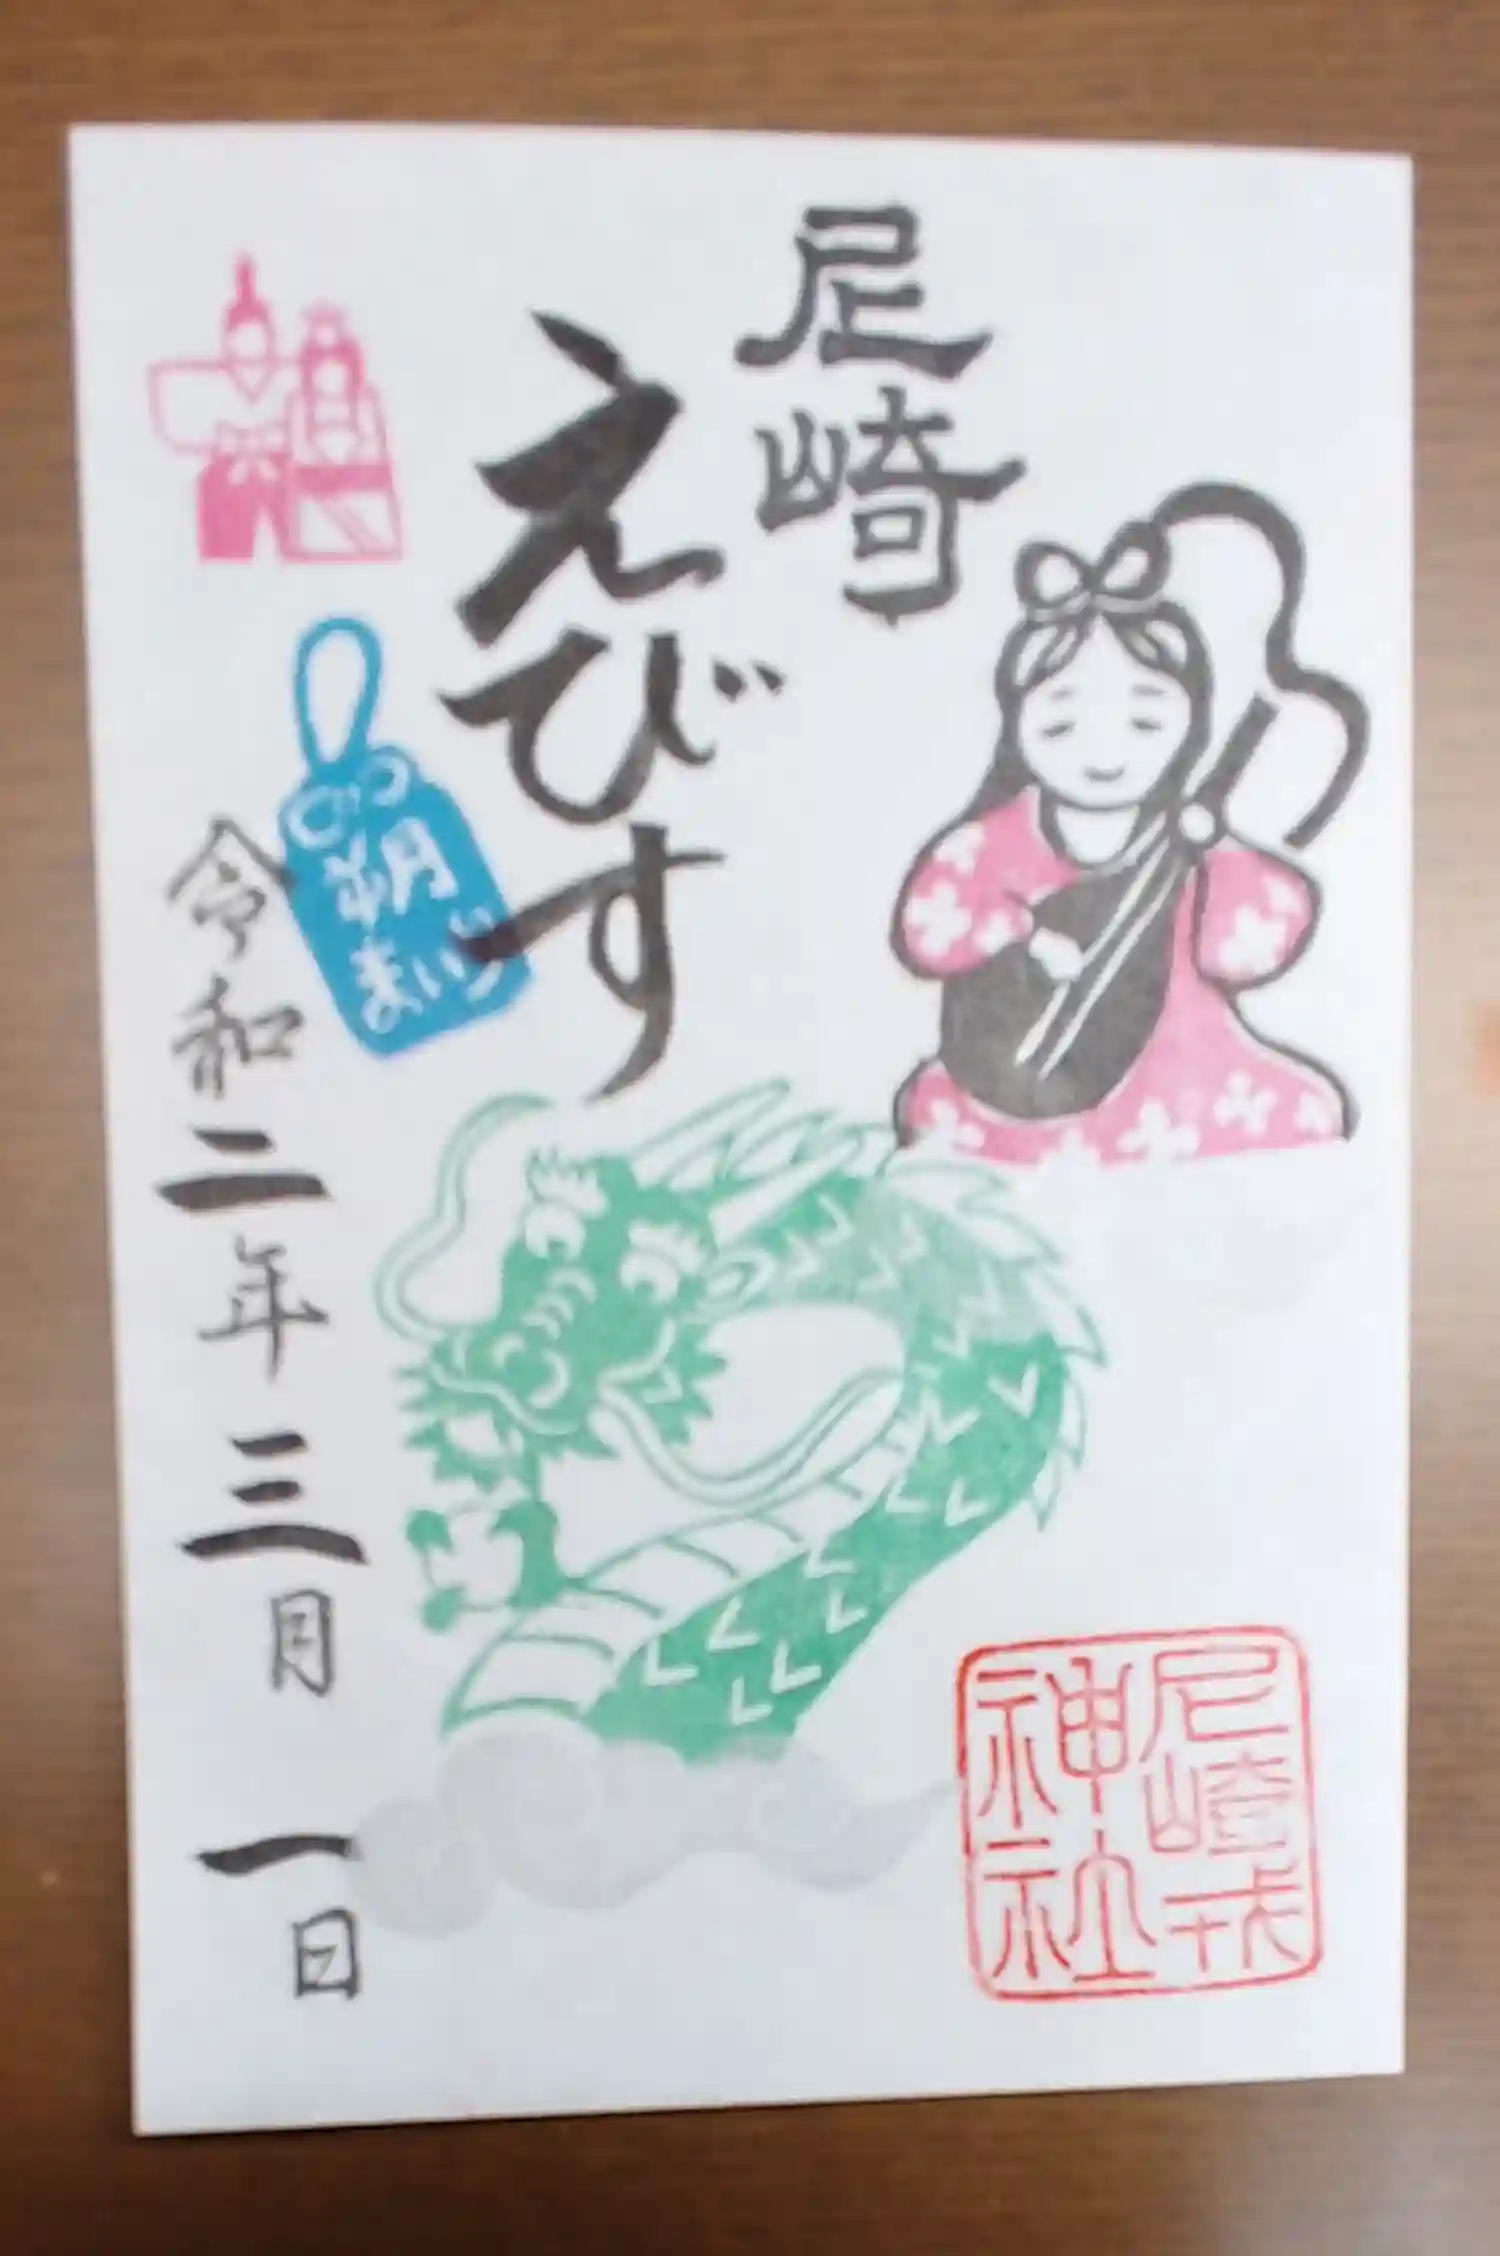 尼崎
えびす
朔日
まいり
令和二年三月一日
尼崎戎
神社